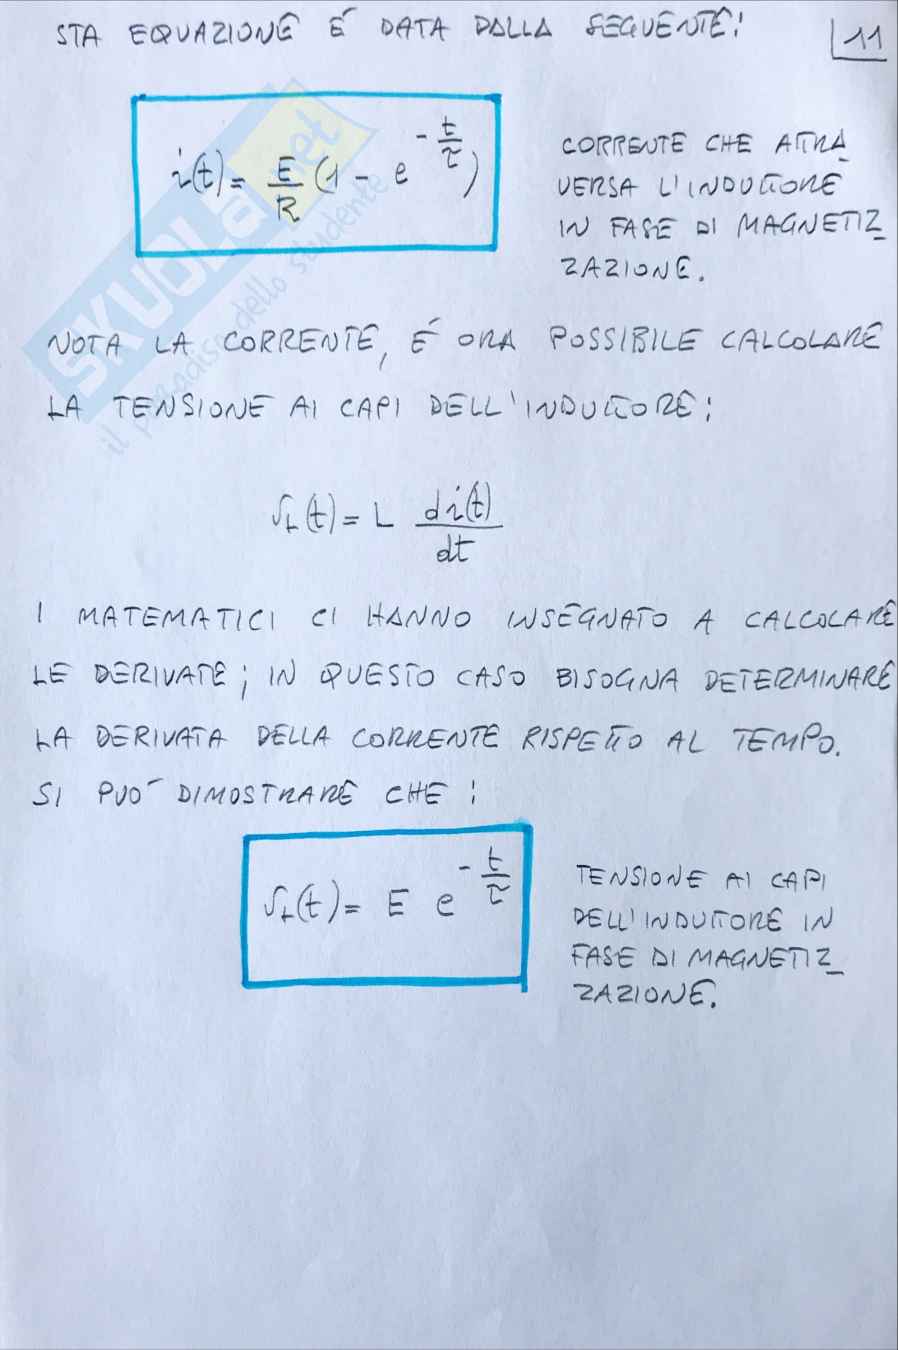 STA EQUAZIONE É DATA DALLA SEGUENTE: 11
i(t) = E/R (1 - e^(-t/τ))
CORRENTE CHE ATTRA_
VERSA L'INDUTTORE
IN FASE DI MAGNETIZ_
ZAZIONE.
NOTA LA CORRENTE, É ORA POSSIBILE CALCOLARE
LA TENSIONE AI CAPI DELL'INDUTTORE:
v_L(t) = L di(t)/dt
I MATEMATICI CI HANNO INSEGNATO A CALCOLARE
LE DERIVATE; IN QUESTO CASO BISOGNA DETERMINARE
LA DERIVATA DELLA CORRENTE RISPETTO AL TEMPO.
SI PUÓ DIMOSTRARE CHE:
v_L(t) = E e^(-t/τ)
TENSIONE AI CAPI
DELL'INDUTTORE IN
FASE DI MAGNETIZ_
ZAZIONE.
SKUOLA.net
il paradiso dello studente